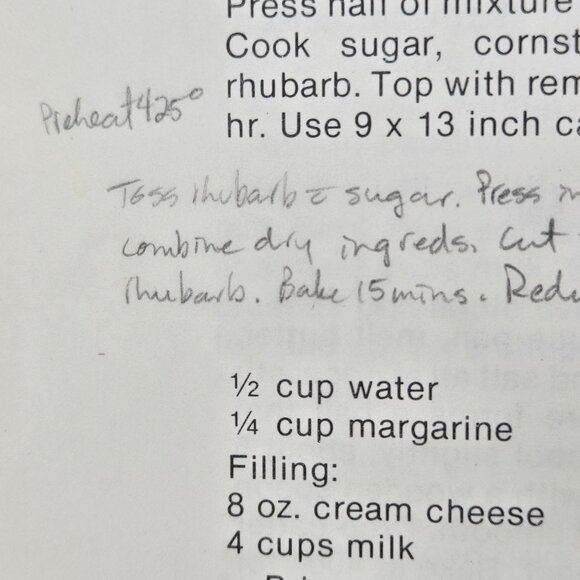 Press half of mixture
Cook sugar, cornst
rhubarb. Top with rem
Preheat 425°
hr. Use 9 x 13 inch ca
Toss rhubarb c̄ sugar. Press in
combine dry ingreds. Cut
rhubarb. Bake 15 mins. Redu
½ cup water
¼ cup margarine
Filling:
8 oz. cream cheese
4 cups milk